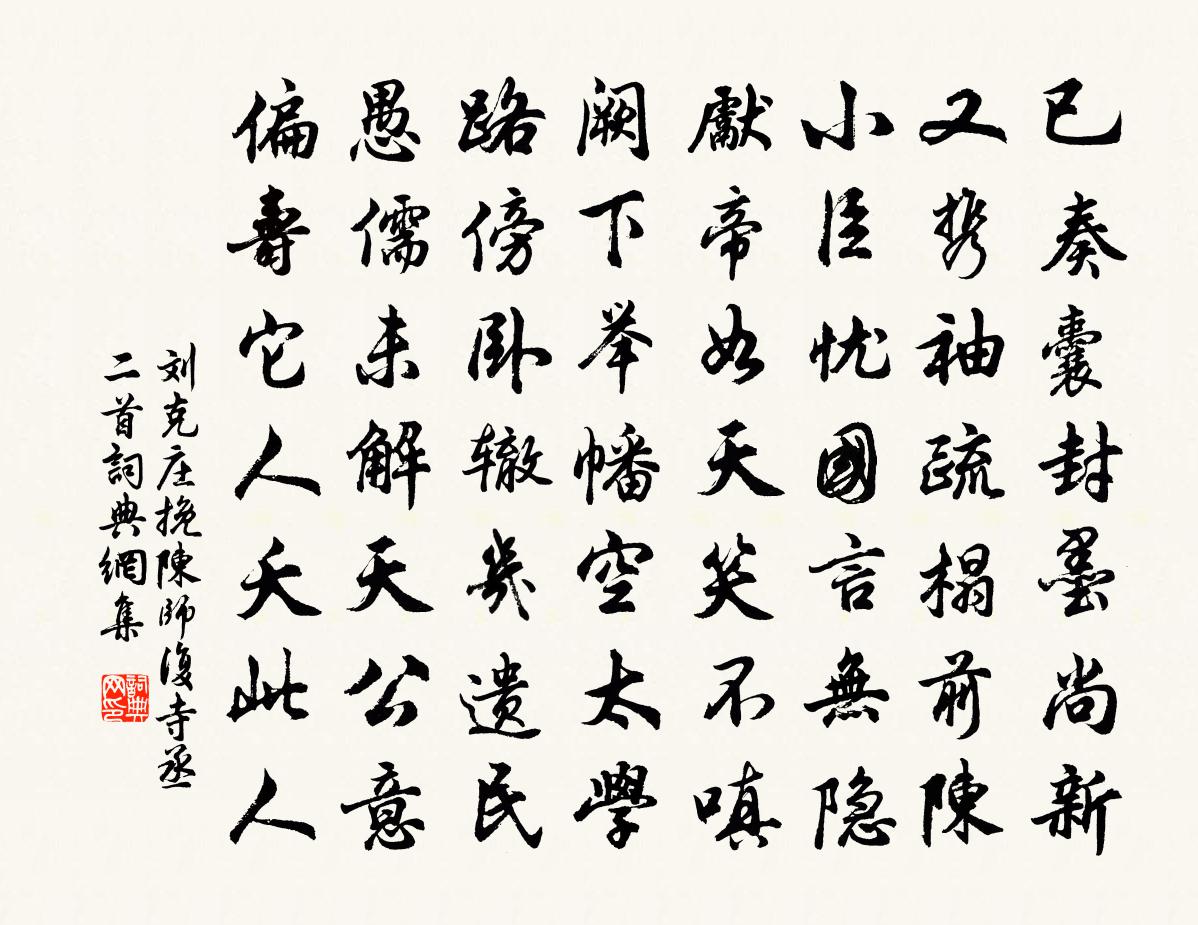 已奏囊封墨尚新
又携袖疏榻前陳
小臣忧國言無隐
獻帝如天笑不嗔
阙下举幡空太學
路傍卧辙幾遗民
愚儒未解天公意
偏壽它人夭此人
刘克庄挽陳師復寺丞
二首詞典網集
詞典网印